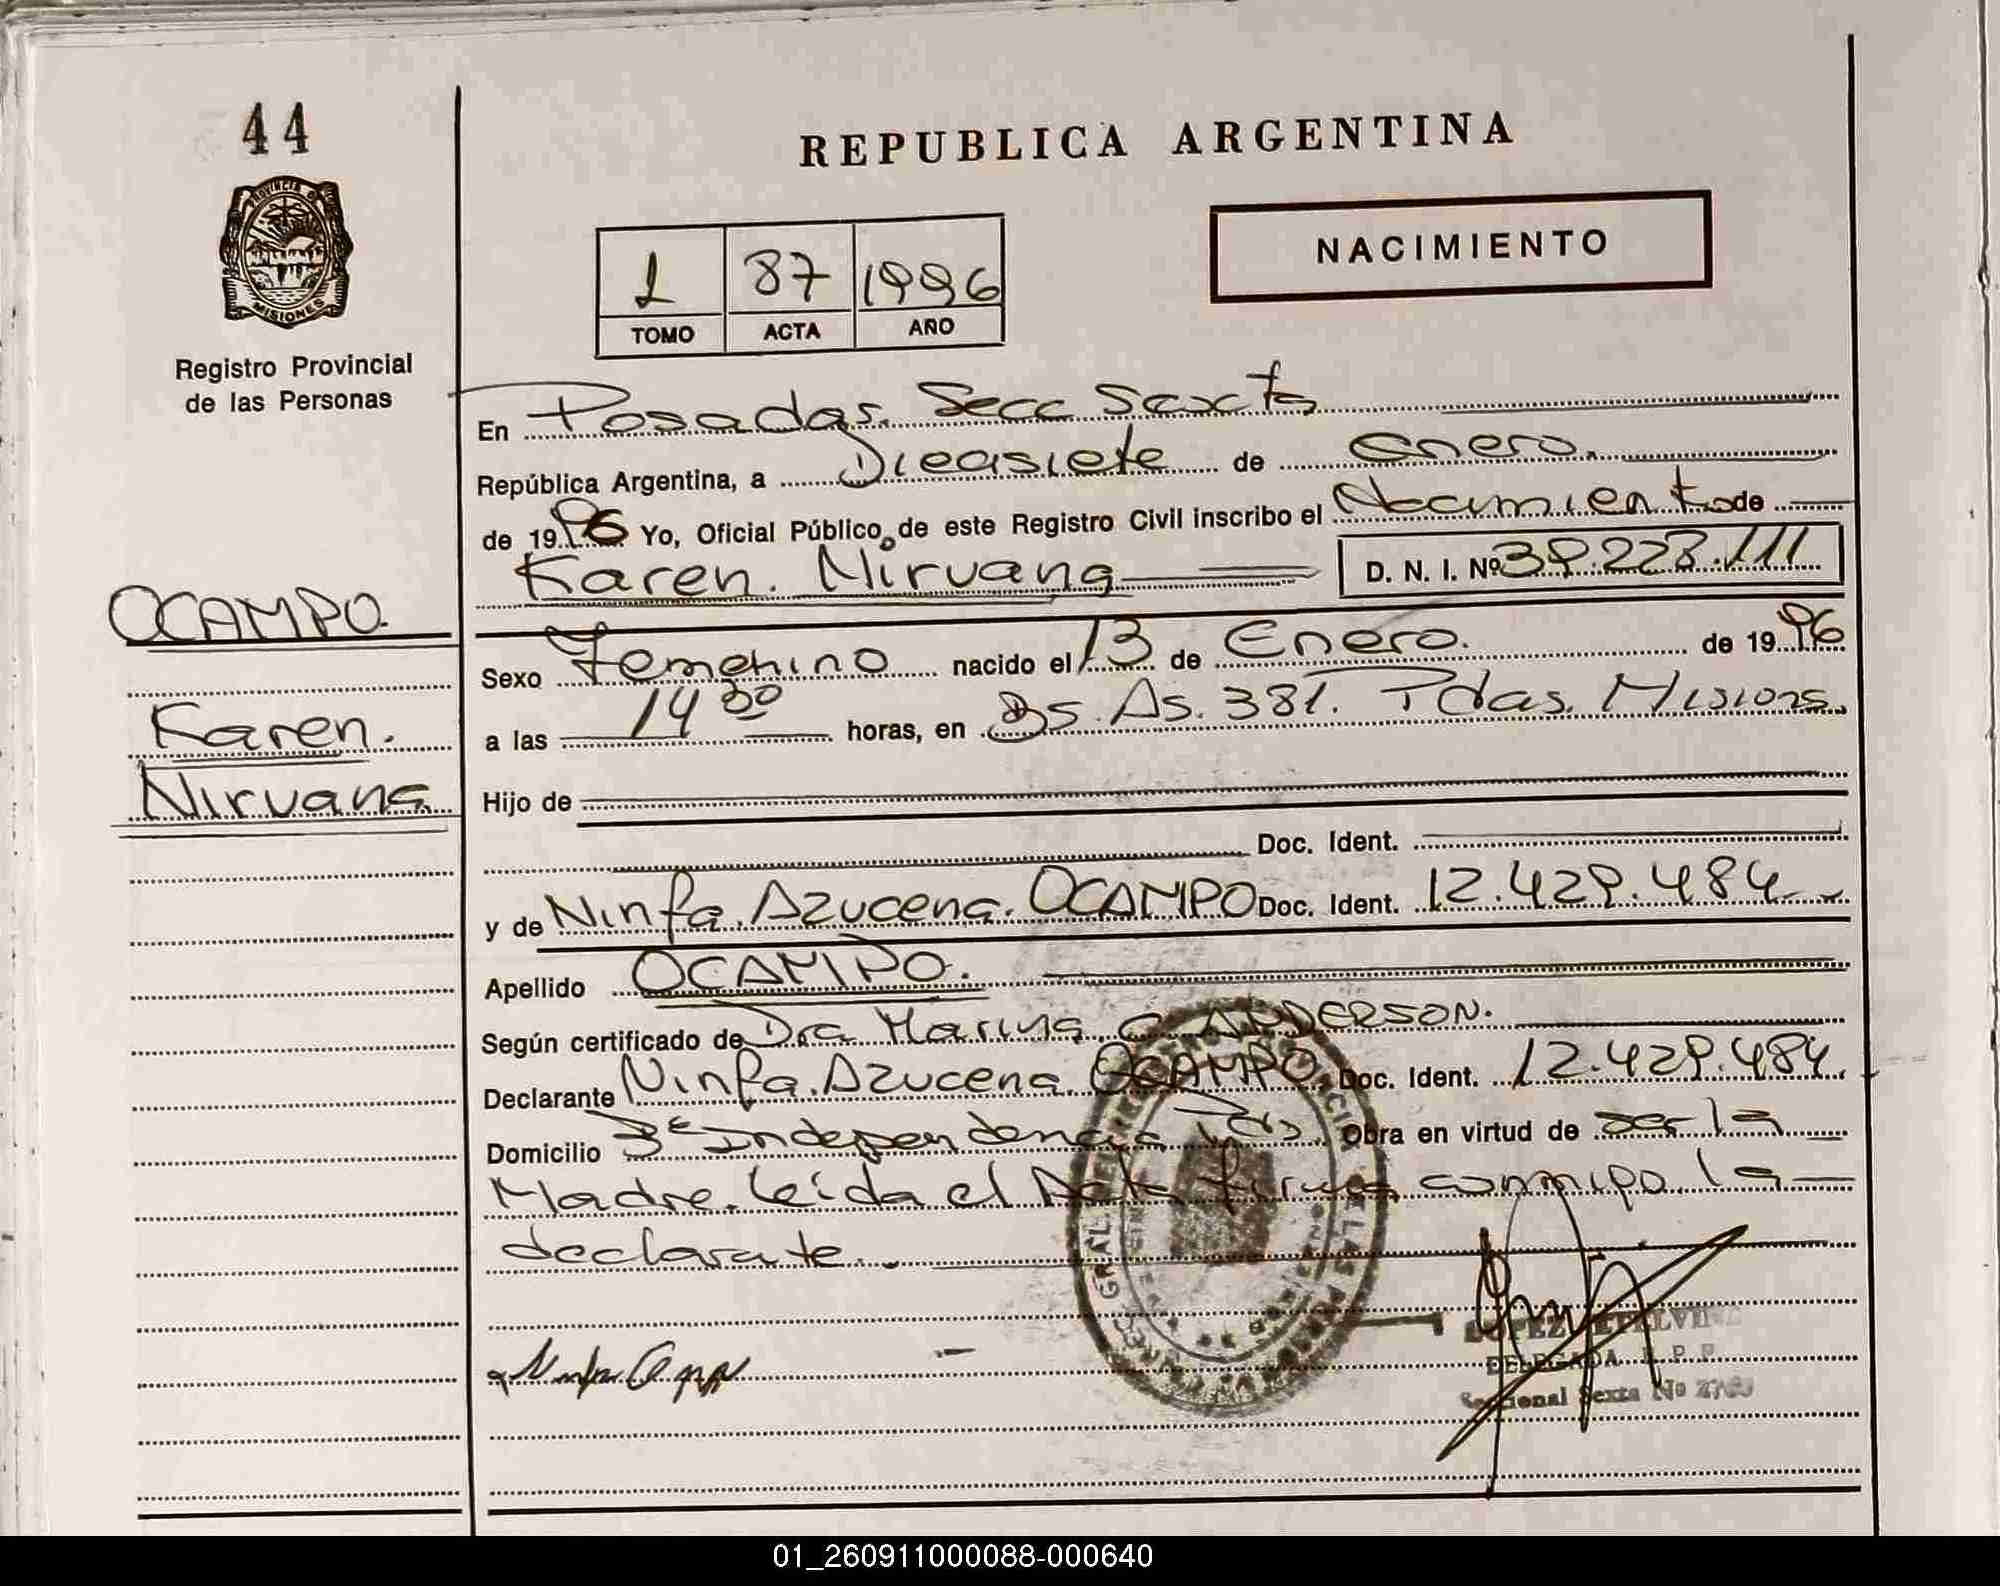 44
REPUBLICA ARGENTINA
PROVINCIA DE
MISIONES
Registro Provincial
de las Personas
NACIMIENTO
1 87 1996
TOMO ACTA AÑO
En Posadas. Secc Sexta
República Argentina, a Dieasiete de enero.
de 1996 Yo, Oficial Público de este Registro Civil inscribo el Nacimiento de
Karen. Nirvana D. N. I. Nº 39.223.111
OCAMPO.
Karen.
Nirvana
Sexo Femenino nacido el 13 de Enero. de 1996
a las 14 30 horas, en Bs. As. 381. Pdas. Misiones.
Hijo de
Doc. Ident.
y de Ninfa. Azucena. OCAMPO Doc. Ident. 12.429.484
Apellido OCAMPO.
Según certificado de Dra Marina C. ANDERSON.
Declarante Ninfa. Azucena OCAMPO. Doc. Ident. 12.429.484.
Domicilio Bº Independencia Pdas. Obra en virtud de ser la
Madre. leída el Acta firma conmigo la
declarante.
LOPEZ ETELVINA
DELEGADA R. P. P.
Seccional Sexta No
01_260911000088-000640